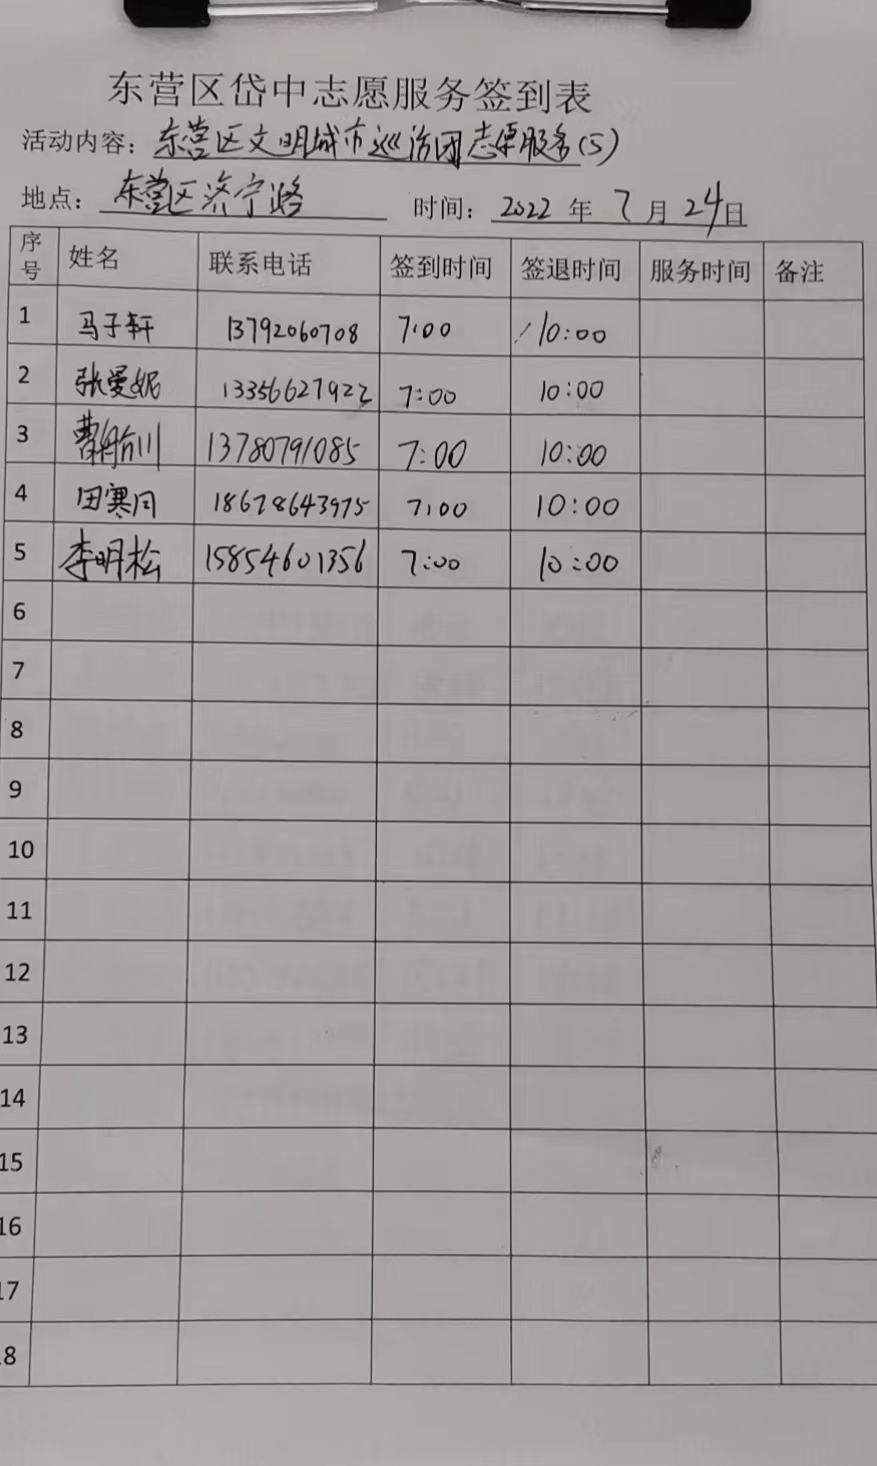 东营区岱中志愿服务签到表
活动内容：东营区文明城市巡访团志愿服务(5)
地点：东营区济宁路 时间：2022 年 7 月 24日
序号 姓名 联系电话 签到时间 签退时间 服务时间 备注
1 马子轩 13792060708 7:00 10:00
2 张曼妮 13356627922 7:00 10:00
3 曹舶川 13780791085 7:00 10:00
4 田寒月 18678643975 7:00 10:00
5 李明松 15854601356 7:00 10:00
6
7
8
9
10
11
12
13
14
15
16
17
18